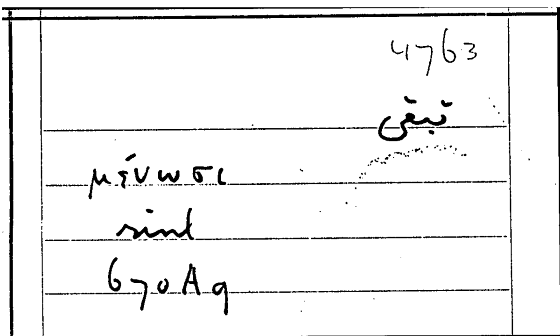 4763
تبقى
μένωσι
sint
670A9